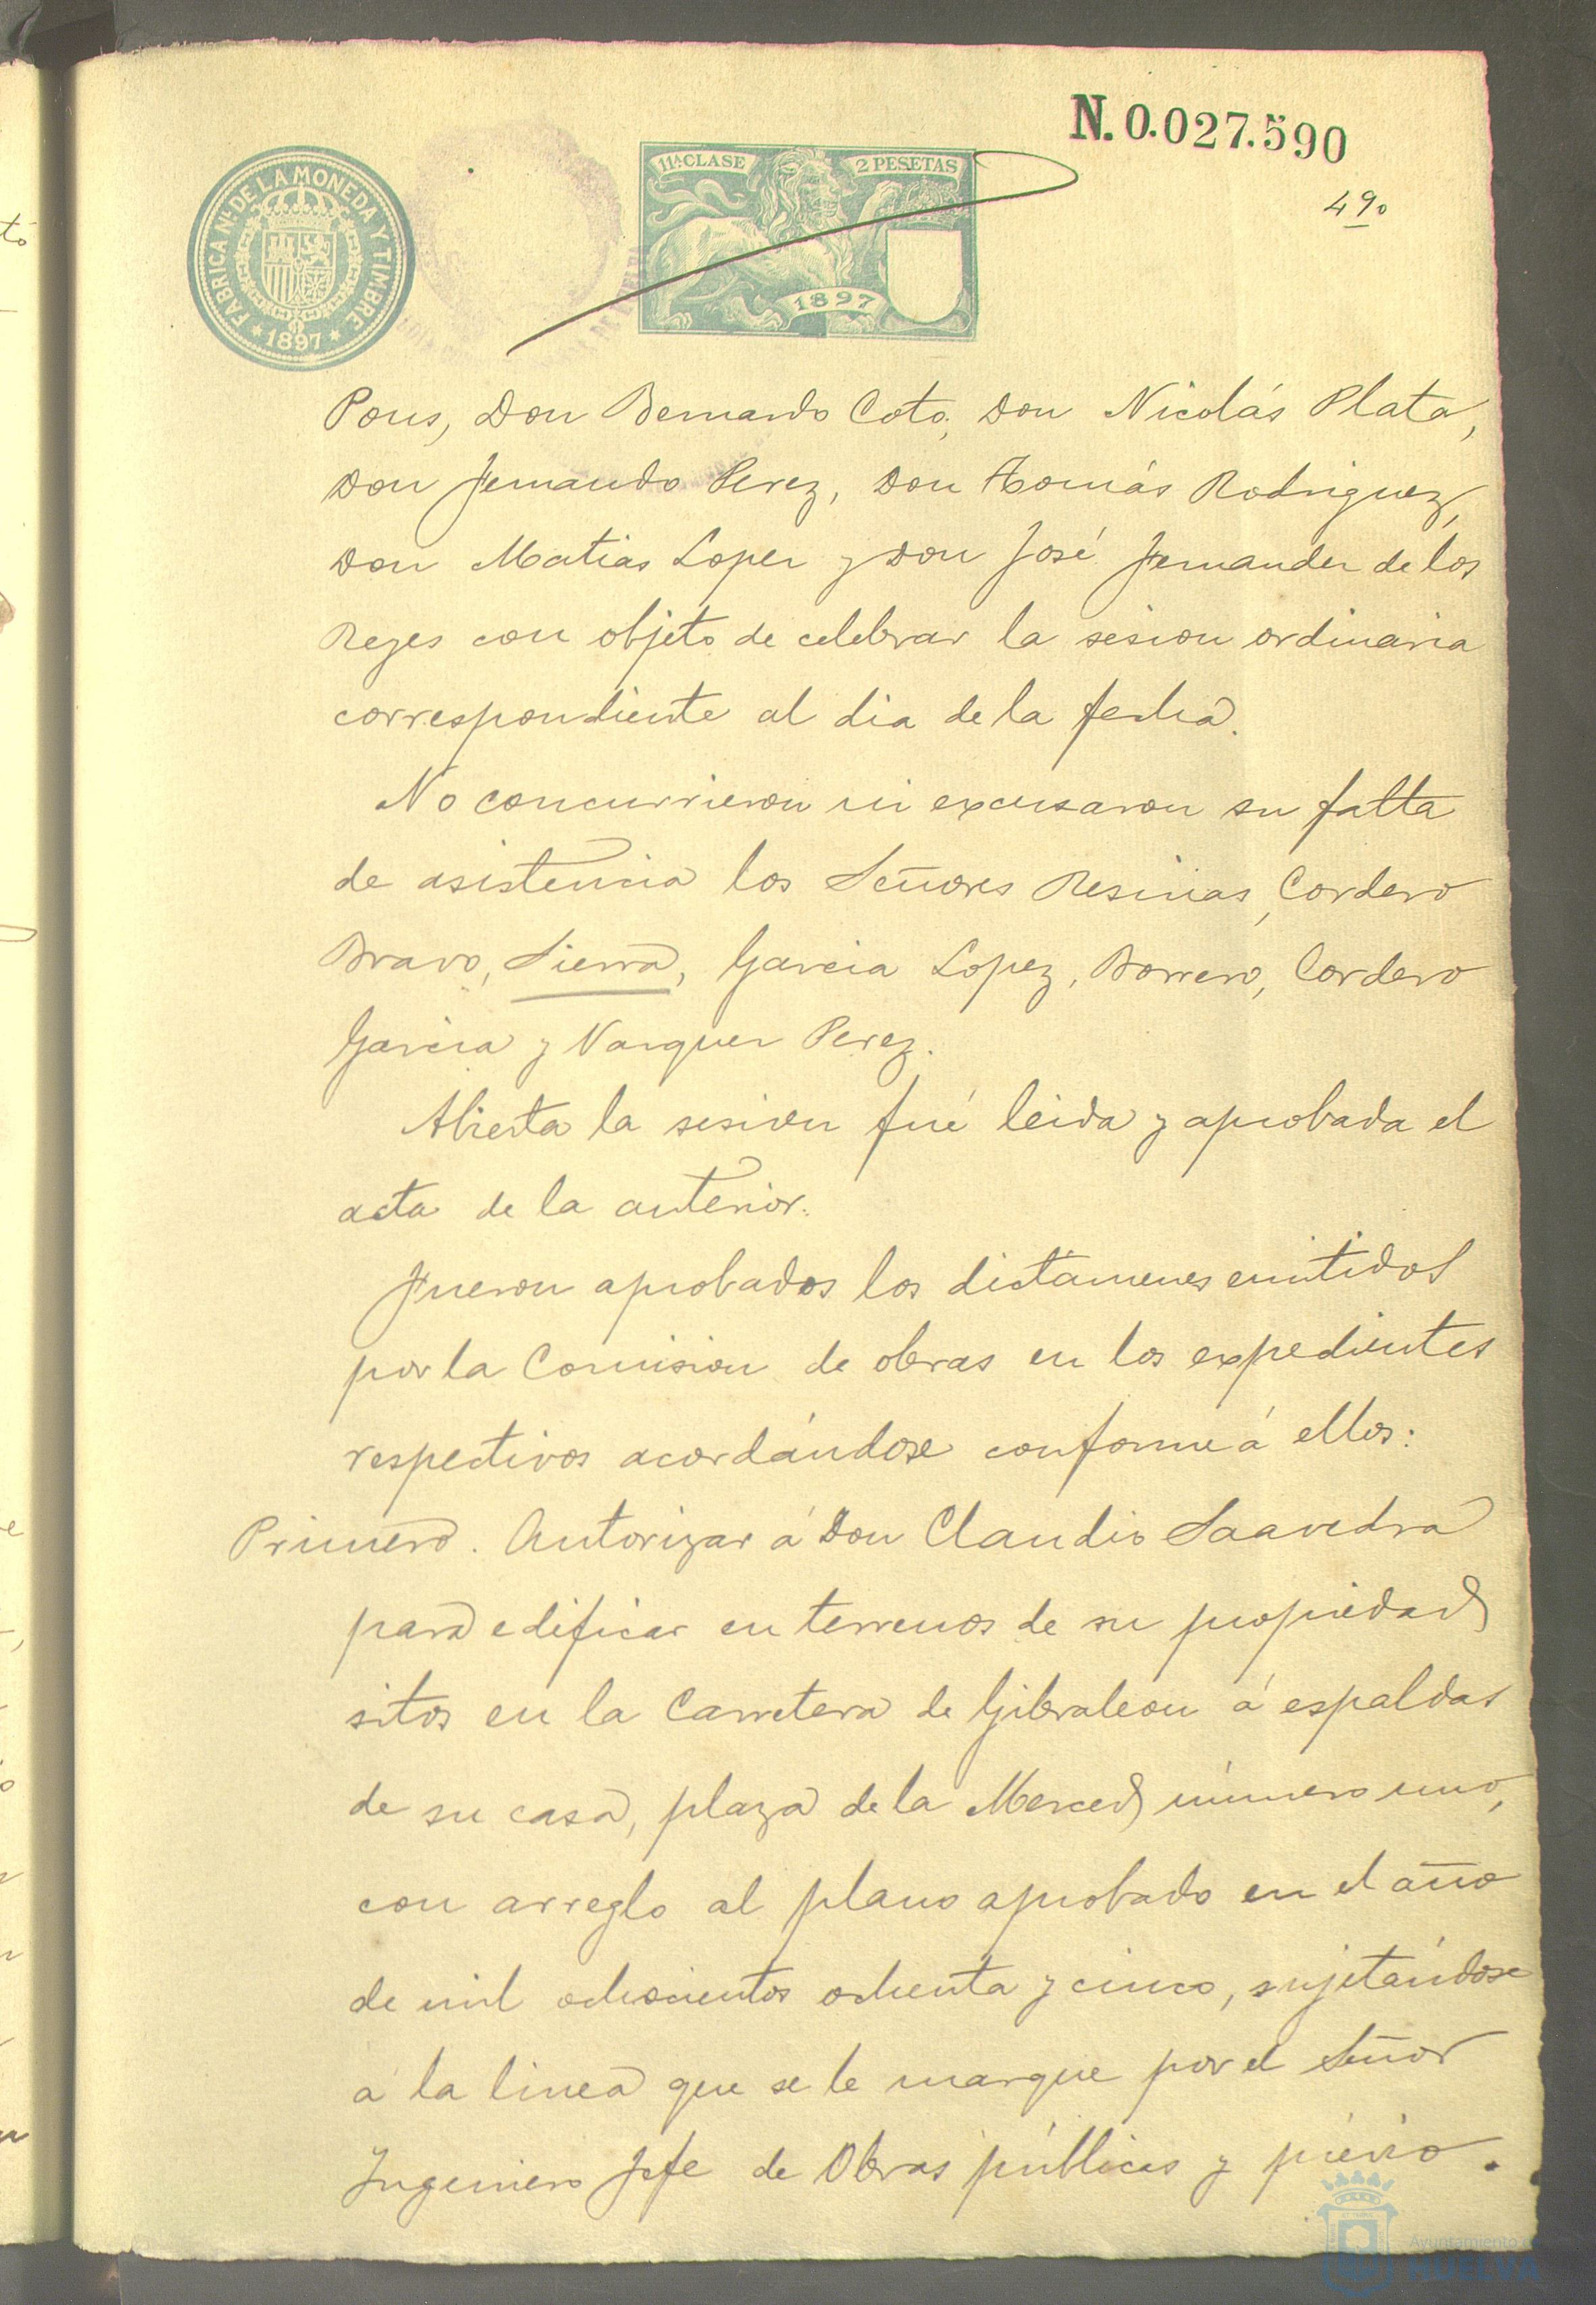 N. 0.027.590
49º
FABRICA NL. DE LA MONEDA Y TIMBRE
* 1897 *
11ª CLASE
2 PESETAS
1897
Pons, Don Bernardo Coto, Don Nicolás Plata,
Don Fernando Perez, Don Tomás Rodriguez,
Don Matias Lopez y Don José Fernandez de los
Reyes con objeto de celebrar la sesion ordinaria
correspondiente al dia de la fecha.
No concurrieron ni excusaron su falta
de asistencia los Señores Resinas, Cordero
Bravo, Sierra, Garcia Lopez, Borrero, Cordero
Garcia y Vazquez Perez.
Abierta la sesion fué leida y aprobada el
acta de la anterior.
Fueron aprobados los dictámenes emitidos
por la Comision de obras en los expedientes
respectivos acordándose conforme á ellos:
Primero. Autorizar á Don Claudio Saavedra
para edificar en terrenos de su propiedad
sitos en la Carretera de Gibraleon á espaldas
de su casa, plaza de la Merced número uno,
con arreglo al plano aprobado en el año
de mil ochocientos ochenta y cinco, sujetándose
á la linea que se le marque por el Señor
Ingeniero Jefe de Obras públicas y prévio
Ayuntamiento
HUELVA